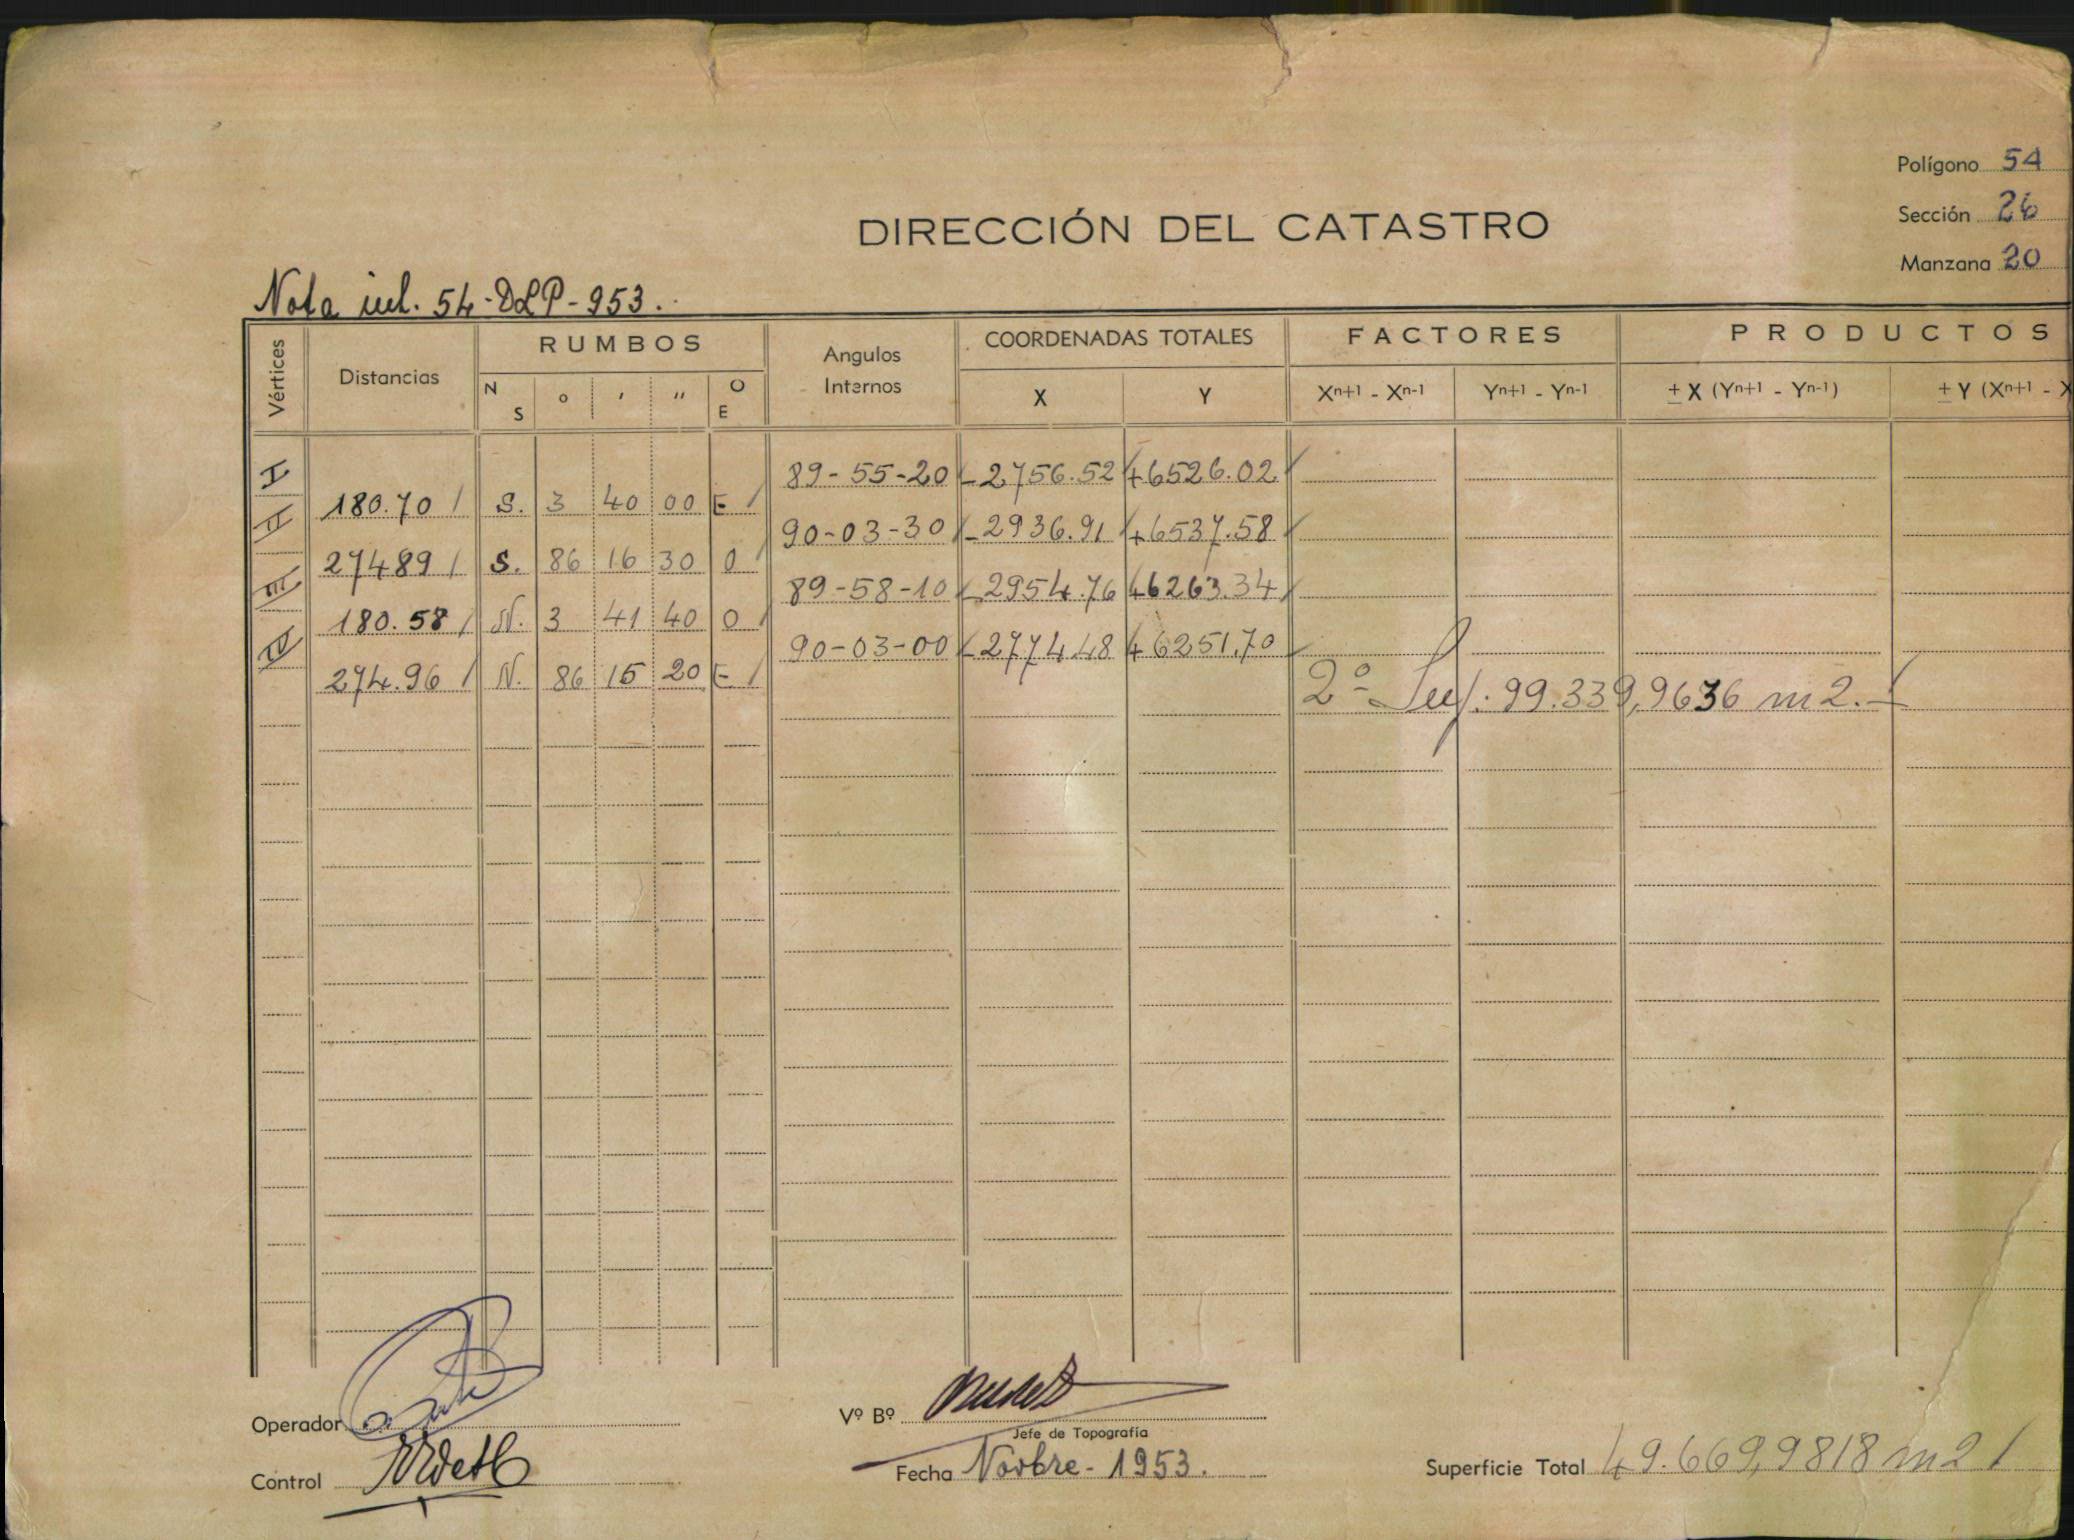 Polígono 54
Sección 26
Manzana 20
DIRECCIÓN DEL CATASTRO
Nota iul. 54-DLP-953.-
Vértices Distancias RUMBOS Angulos Internos COORDENADAS TOTALES FACTORES PRODUCTOS
N S ° ' " O E X Y Xⁿ⁺¹ - Xⁿ⁻¹ Yⁿ⁺¹ - Yⁿ⁻¹ ± X (Yⁿ⁺¹ - Yⁿ⁻¹) ± Y (Xⁿ⁺¹ - X
I 89-55-20 -2756.52 +6526.02
180.70 S. 3 40 00 E
II 90-03-30 -2936.91 +6537.58
274.89 S. 86 16 30 O
III 89-58-10 -2954.76 +6263.34
180.58 N. 3 41 40 O
IV 90-03-00 -2774.48 +6251.70
274.96 N. 86 15 20 E
2ª Sup. 99.339,9636 m2.-
Operador
Vº Bº
Jefe de Topografía
Control
Fecha Novbre- 1953.
Superficie Total 49.669,9818 m2